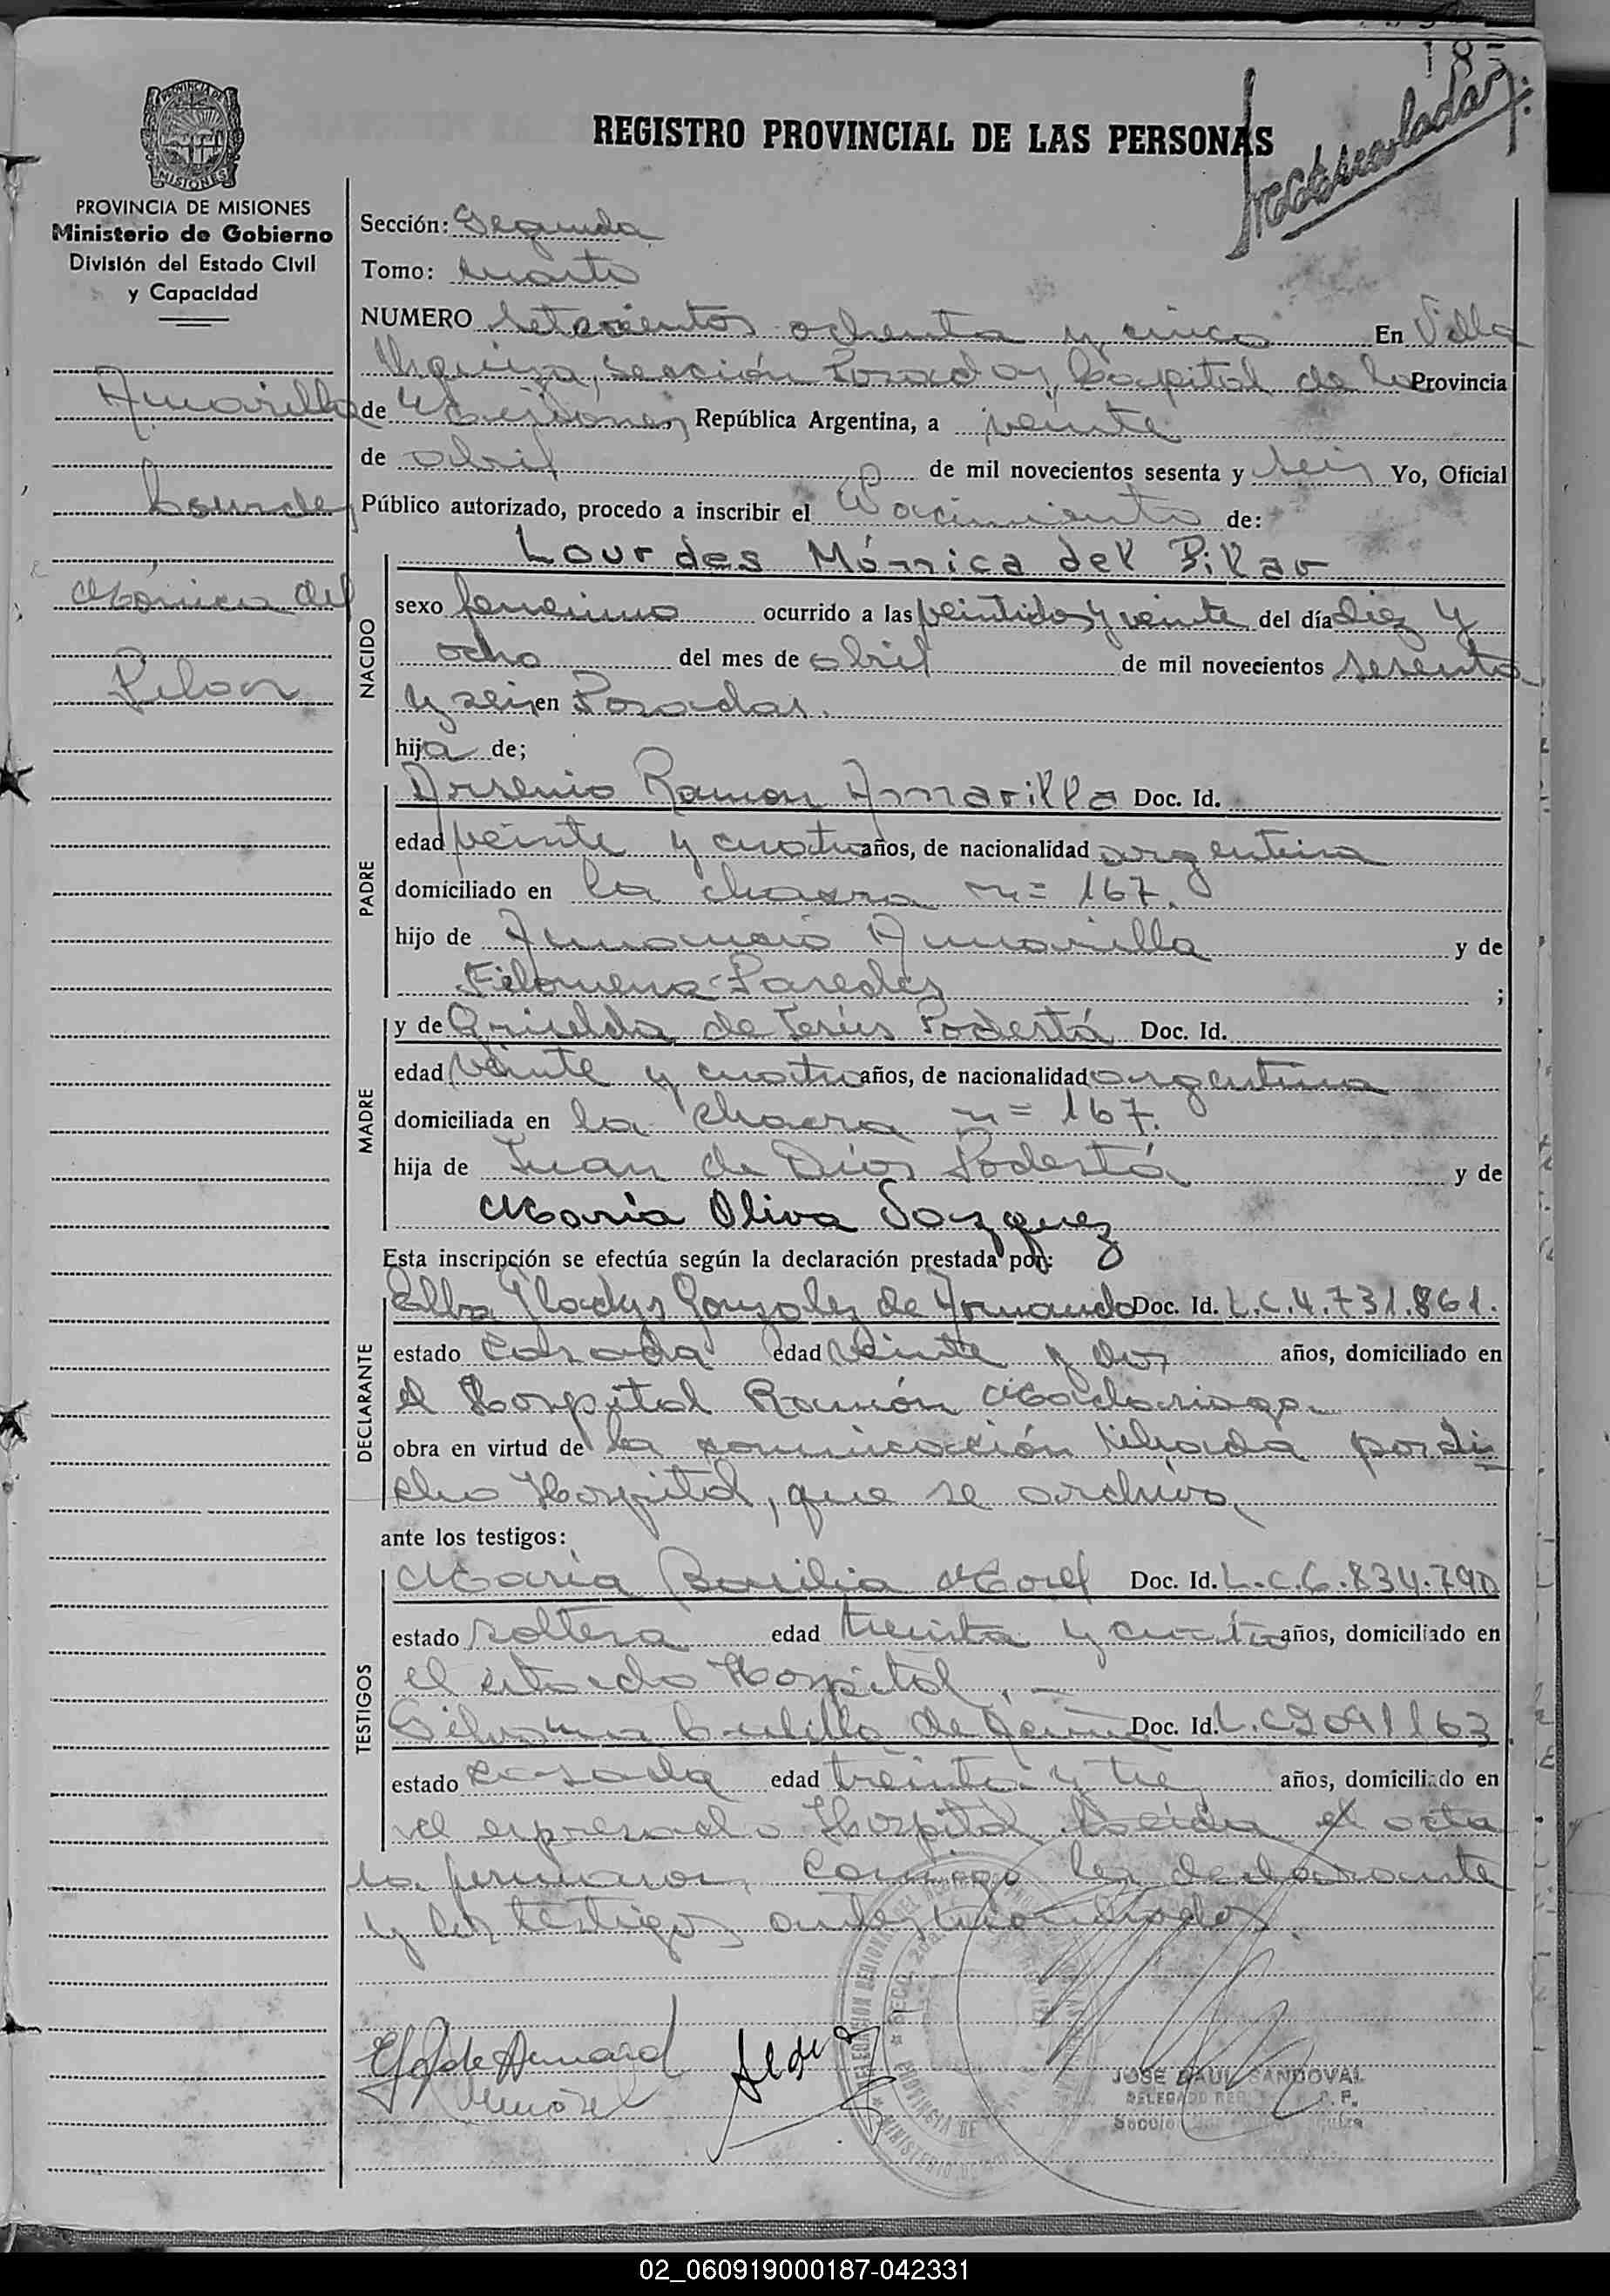 185
Matriculada
PROVINCIA DE
MISIONES
REGISTRO PROVINCIAL DE LAS PERSONAS
PROVINCIA DE MISIONES
Ministerio de Gobierno
División del Estado Civil
y Capacidad
Amarilla
Lourdes
Mónica del
Pilar
Sección: Segunda
Tomo: cuarto
NUMERO setecientos ochenta y cinco En Villa
Urquiza, Sección Posadas, Capital de la Provincia
de Misiones, República Argentina, a veinte
de abril de mil novecientos sesenta y seis Yo, Oficial
Público autorizado, procedo a inscribir el Nacimiento de:
NACIDO
Lourdes Mónica del Pilar
sexo femenino ocurrido a las veintidos y veinte del día diez y
ocho del mes de abril de mil novecientos sesenta
y seis en Posadas.
hija de;
PADRE
Arsenio Ramon Amarilla Doc. Id.
edad veinte y cuatro años, de nacionalidad argentina
domiciliado en la chacra n= 167.
hijo de Amancio Amarilla y de
Filomena Paredes ;
MADRE
y de Griselda de Jesús Podestá Doc. Id.
edad veinte y cuatro años, de nacionalidad argentina
domiciliada en la chacra n= 167.
hija de Juan de Dios Podestá y de
María Oliva Vazquez
Esta inscripción se efectúa según la declaración prestada por:
DECLARANTE
Elba Gladys Gonzalez de Armando Doc. Id. L.C.4.731.861.
estado casada edad veinte y dos años, domiciliado en
el Hospital Ramón Madariaga
obra en virtud de la comunicación librada por di
cho Hospital, que se archiva
ante los testigos:
TESTIGOS
María Basilia Morel Doc. Id. L.C.6.834.790
estado soltera edad treinta y cuatro años, domiciliado en
el citado Hospital.
de Doc. Id. L.C 2091163
estado casada edad treinta y tres años, domiciliado en
el expresado Hospital leída el acta
la firmaron conmigo la declarante
y los testigos antes mencionados.
JOSE RAUL SANDOVAL
DELEGADO
02_060919000187-042331